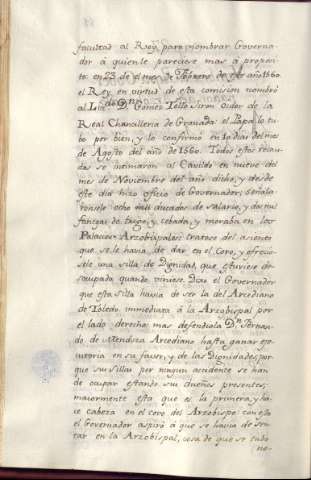 facultad al Rey, para nombrar Governa-
dor à quien le pareciere mas à proposi-
to en 23 de el mes de Febrero de este año 1560.
el Rey, en virtud de esta comision nombrò
al Lizdo. Dn. Gomez Tello Giron Oidor de la
Real Chancilleria de Granada: el Papa lo tu-
bo por bien, y lo confirmó en 10 dias del mes
de Agosto del año de 1560. Todos estos recau-
dos se intimaron al Cavildo en nueve del
mes de Noviembre del año dicho, y desde
este dia hizo oficio de Governador; señala-
ronsele ocho mil ducados de salario, y dos mil
fanegas de trigo, y cebada, y moraba en los
Palacios Arzobispales: tratose del asiento
que se le havia de dar en el Coro, y ofrecio-
sele una silla de Dignidad, que estuviese de-
socupada quando viniese. Dixo el Governador
que esta silla havia de ser la del Arcediano
de Toledo immediata à la Arzobispal por
el lado derecho; mas defendiala Dn. Fernan-
do de Mendoza Arcediano hasta ganar exe-
cutoria en su favor, y de las Dignidades, por
que sus sillas por ningun accidente se han
de ocupar estando sus dueños presentes;
maiormente esta que es la primera, y ha-
ce cabeza en el coro del Arzobispo: con esto
el Governador aspirò à que se havia de sen-
tar en la Arzobispal, cosa de que se tubo
no-